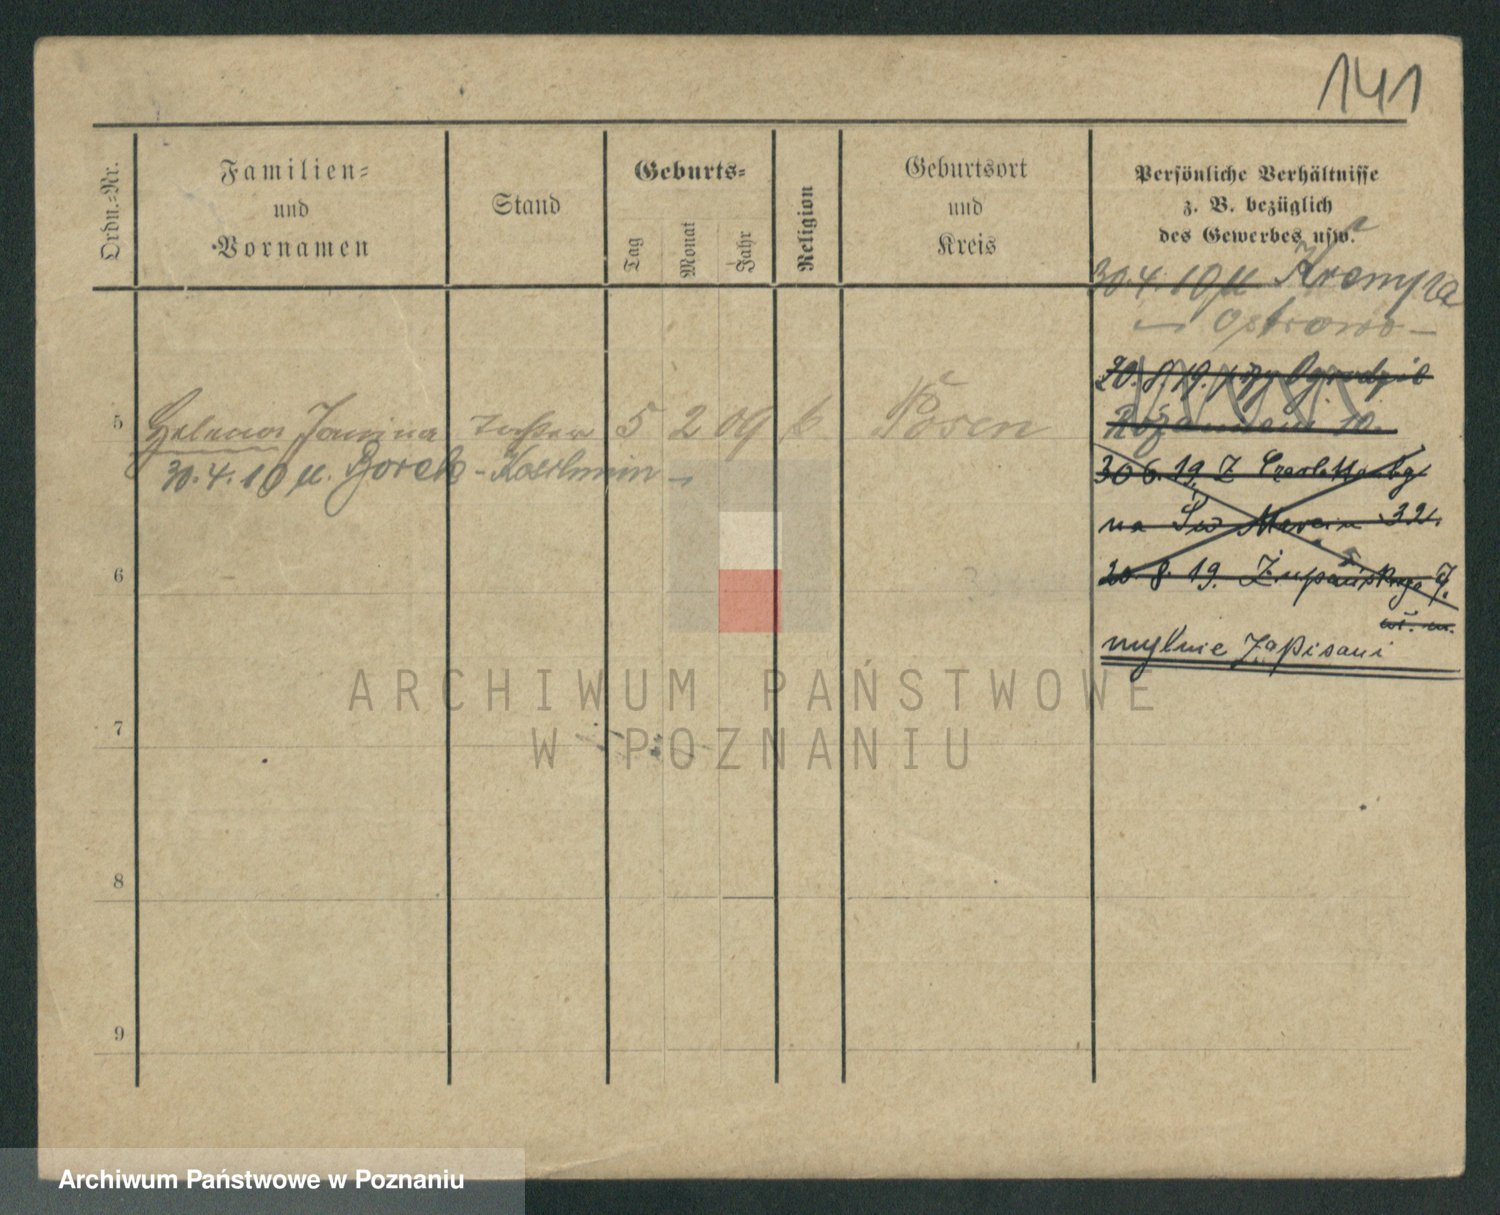 141
Ordn.-Nr.
Familien-
und
Vornamen
Stand
Geburts-
Tag
Monat
Jahr
Religion
Geburtsort
und
Kreis
Persönliche Verhältnisse
z. B. bezüglich
des Gewerbes usw.
30.4.10
Ostrowo
20. 8. 19.
10.
5 Helena Janina 5 2 09 k Posen
30.4.10 Borek - Koschmin -
30 6. 19. Z
na Św Marcin 32.
6
20. 8. 19. Żupańskiego
mylnie zapisani
7
8
9
ARCHIWUM PAŃSTWOWE
W POZNANIU
Archiwum Państwowe w Poznaniu